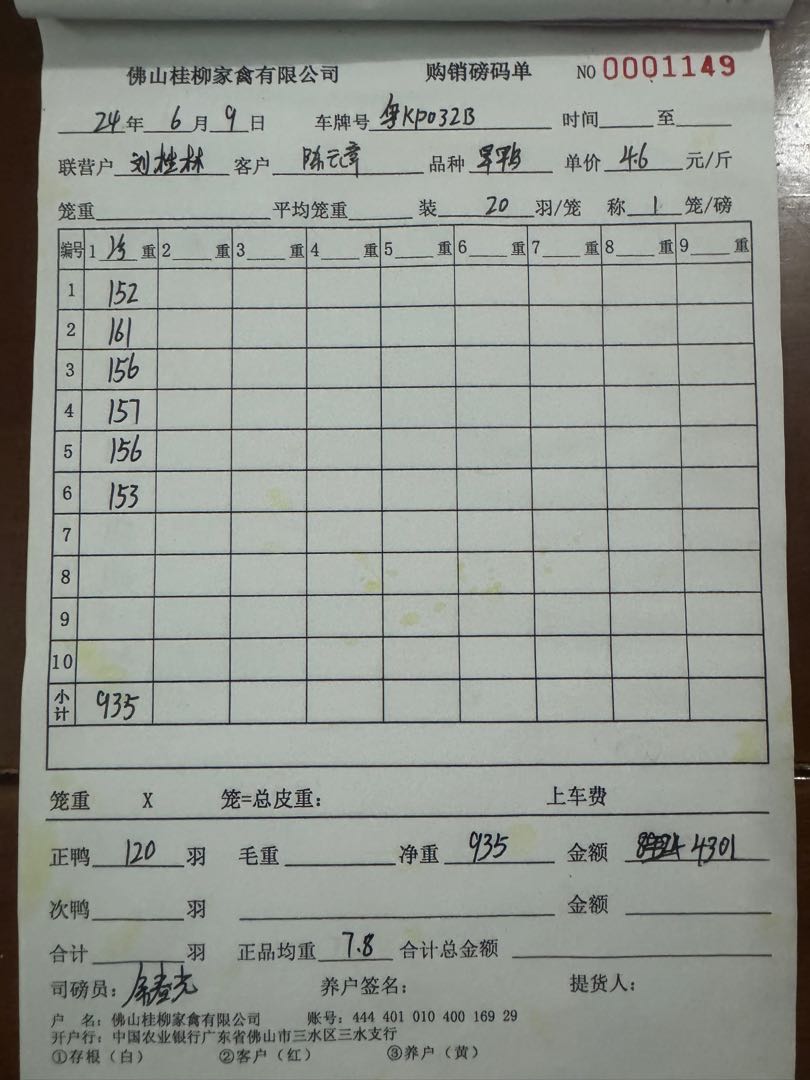 佛山桂柳家禽有限公司 购销磅码单 NO 0001149
24年 6月 9日 车牌号 粤KP032B 时间 至
联营户 刘桂林 客户 陈元章 品种 旱鸭 单价 4.6 元/斤
笼重 平均笼重 装 20 羽/笼 称 1 笼/磅
编号 1 净 重 2 重 3 重 4 重 5 重 6 重 7 重 8 重 9 重
1 152
2 161
3 156
4 157
5 156
6 153
7
8
9
10
小计 935
笼重 X 笼=总皮重: 上车费
正鸭 120 羽 毛重 净重 935 金额 4301
次鸭 羽 金额
合计 羽 正品均重 7.8 合计总金额
司磅员: 养户签名: 提货人:
户 名: 佛山桂柳家禽有限公司 账号: 444 401 010 400 169 29
开户行: 中国农业银行广东省佛山市三水区三水支行
①存根(白) ②客户(红) ③养户(黄)